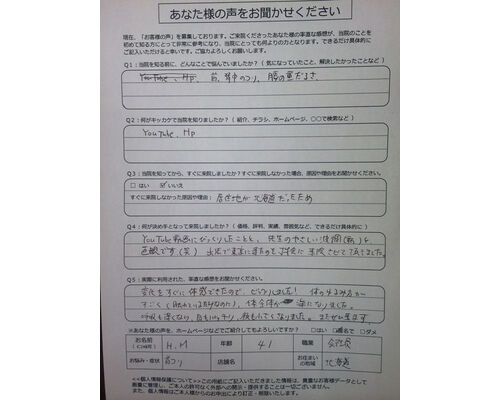 あなた様の声をお聞かせください
現在、「お客様の声」を募集しております。ご来院くださったあなた様の率直な感想が、当院のことを
初めて知る方にとって非常に参考になり、当院にとっても何よりの力となります。できるだけ具体的に
ご記入いただけると幸いです。ご協力よろしくお願いします。
Q1：当院を知る前に、どんなことで悩んでいましたか？（気になっていたこと、解決したかったことなど）
YouTube、Hp、首、背中のコリ、腰の重だるさ、
Q2：何がキッカケで当院を知りましたか？（紹介、チラシ、ホームページ、○○で検索など）
YouTube、Hp
Q3：当院を知ってから、すぐに来院しましたか？すぐに来院しなかった場合、原因や理由をお聞かせください。
□ はい ☑いいえ
すぐに来院しなかった原因や理由： 居住地が北海道だったため
Q4：何が決め手となって来院しましたか？（価格、評判、実績、雰囲気など、できるだけ具体的に）
YouTube動画にびっくりしたことと、先生のやさしい
直感です（笑）
Q5：実際に利用された、率直な感想をお聞かせください。
変化をすぐに体感できたので、びっくりしました！
すごくて 体全体が 楽になりました。
呼吸も深くなり、目もパッチリ
※あなた様の声を、ホームページなどでご紹介してもよろしいですか？ □はい ☑匿名で □ダメ
お名前 H.M 年齢 41 職業 会社員
お悩み・症状 首コリ 店舗名 お住まいの地域 北海道
<<個人情報保護について>>この用紙にご記入いただきました情報は、貴重なお客様データとして
厳重に管理し、ご本人の許可なく外部への開示・提供することは一切ございません。
また、個人情報はご本人様からのお申出により訂正・削除いたします。